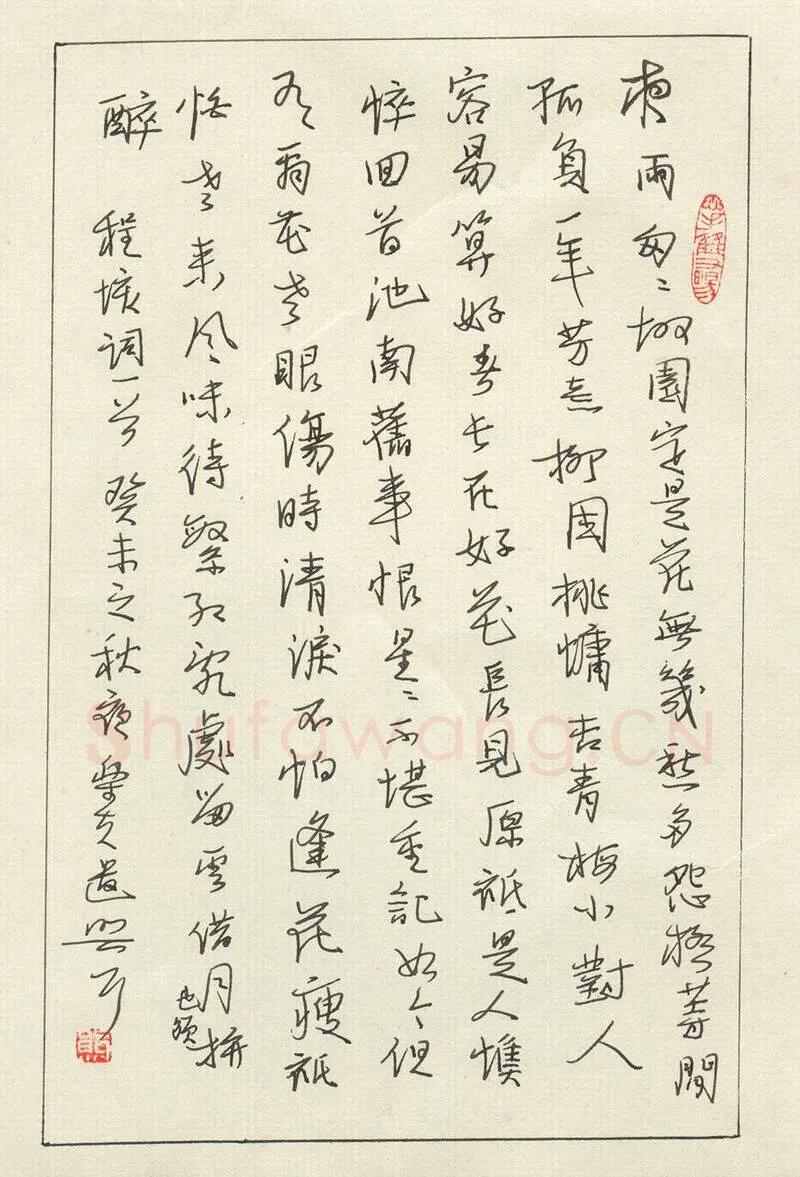 夜雨匆〻故園定是花無幾愁多怨極等閒
孤負一年芳意柳困桃慵杏青梅小對人
容易算好春長在好花長見原祇是人憔
悴回首池南舊事恨星〻不堪重記如今但
有看花老眼傷時清淚不怕逢花瘦祇
怕老來風味待繁紅亂處留雲借月拚
也須
醉 程垓詞一首 癸未之秋夜遣興耳
Shufawang.CN